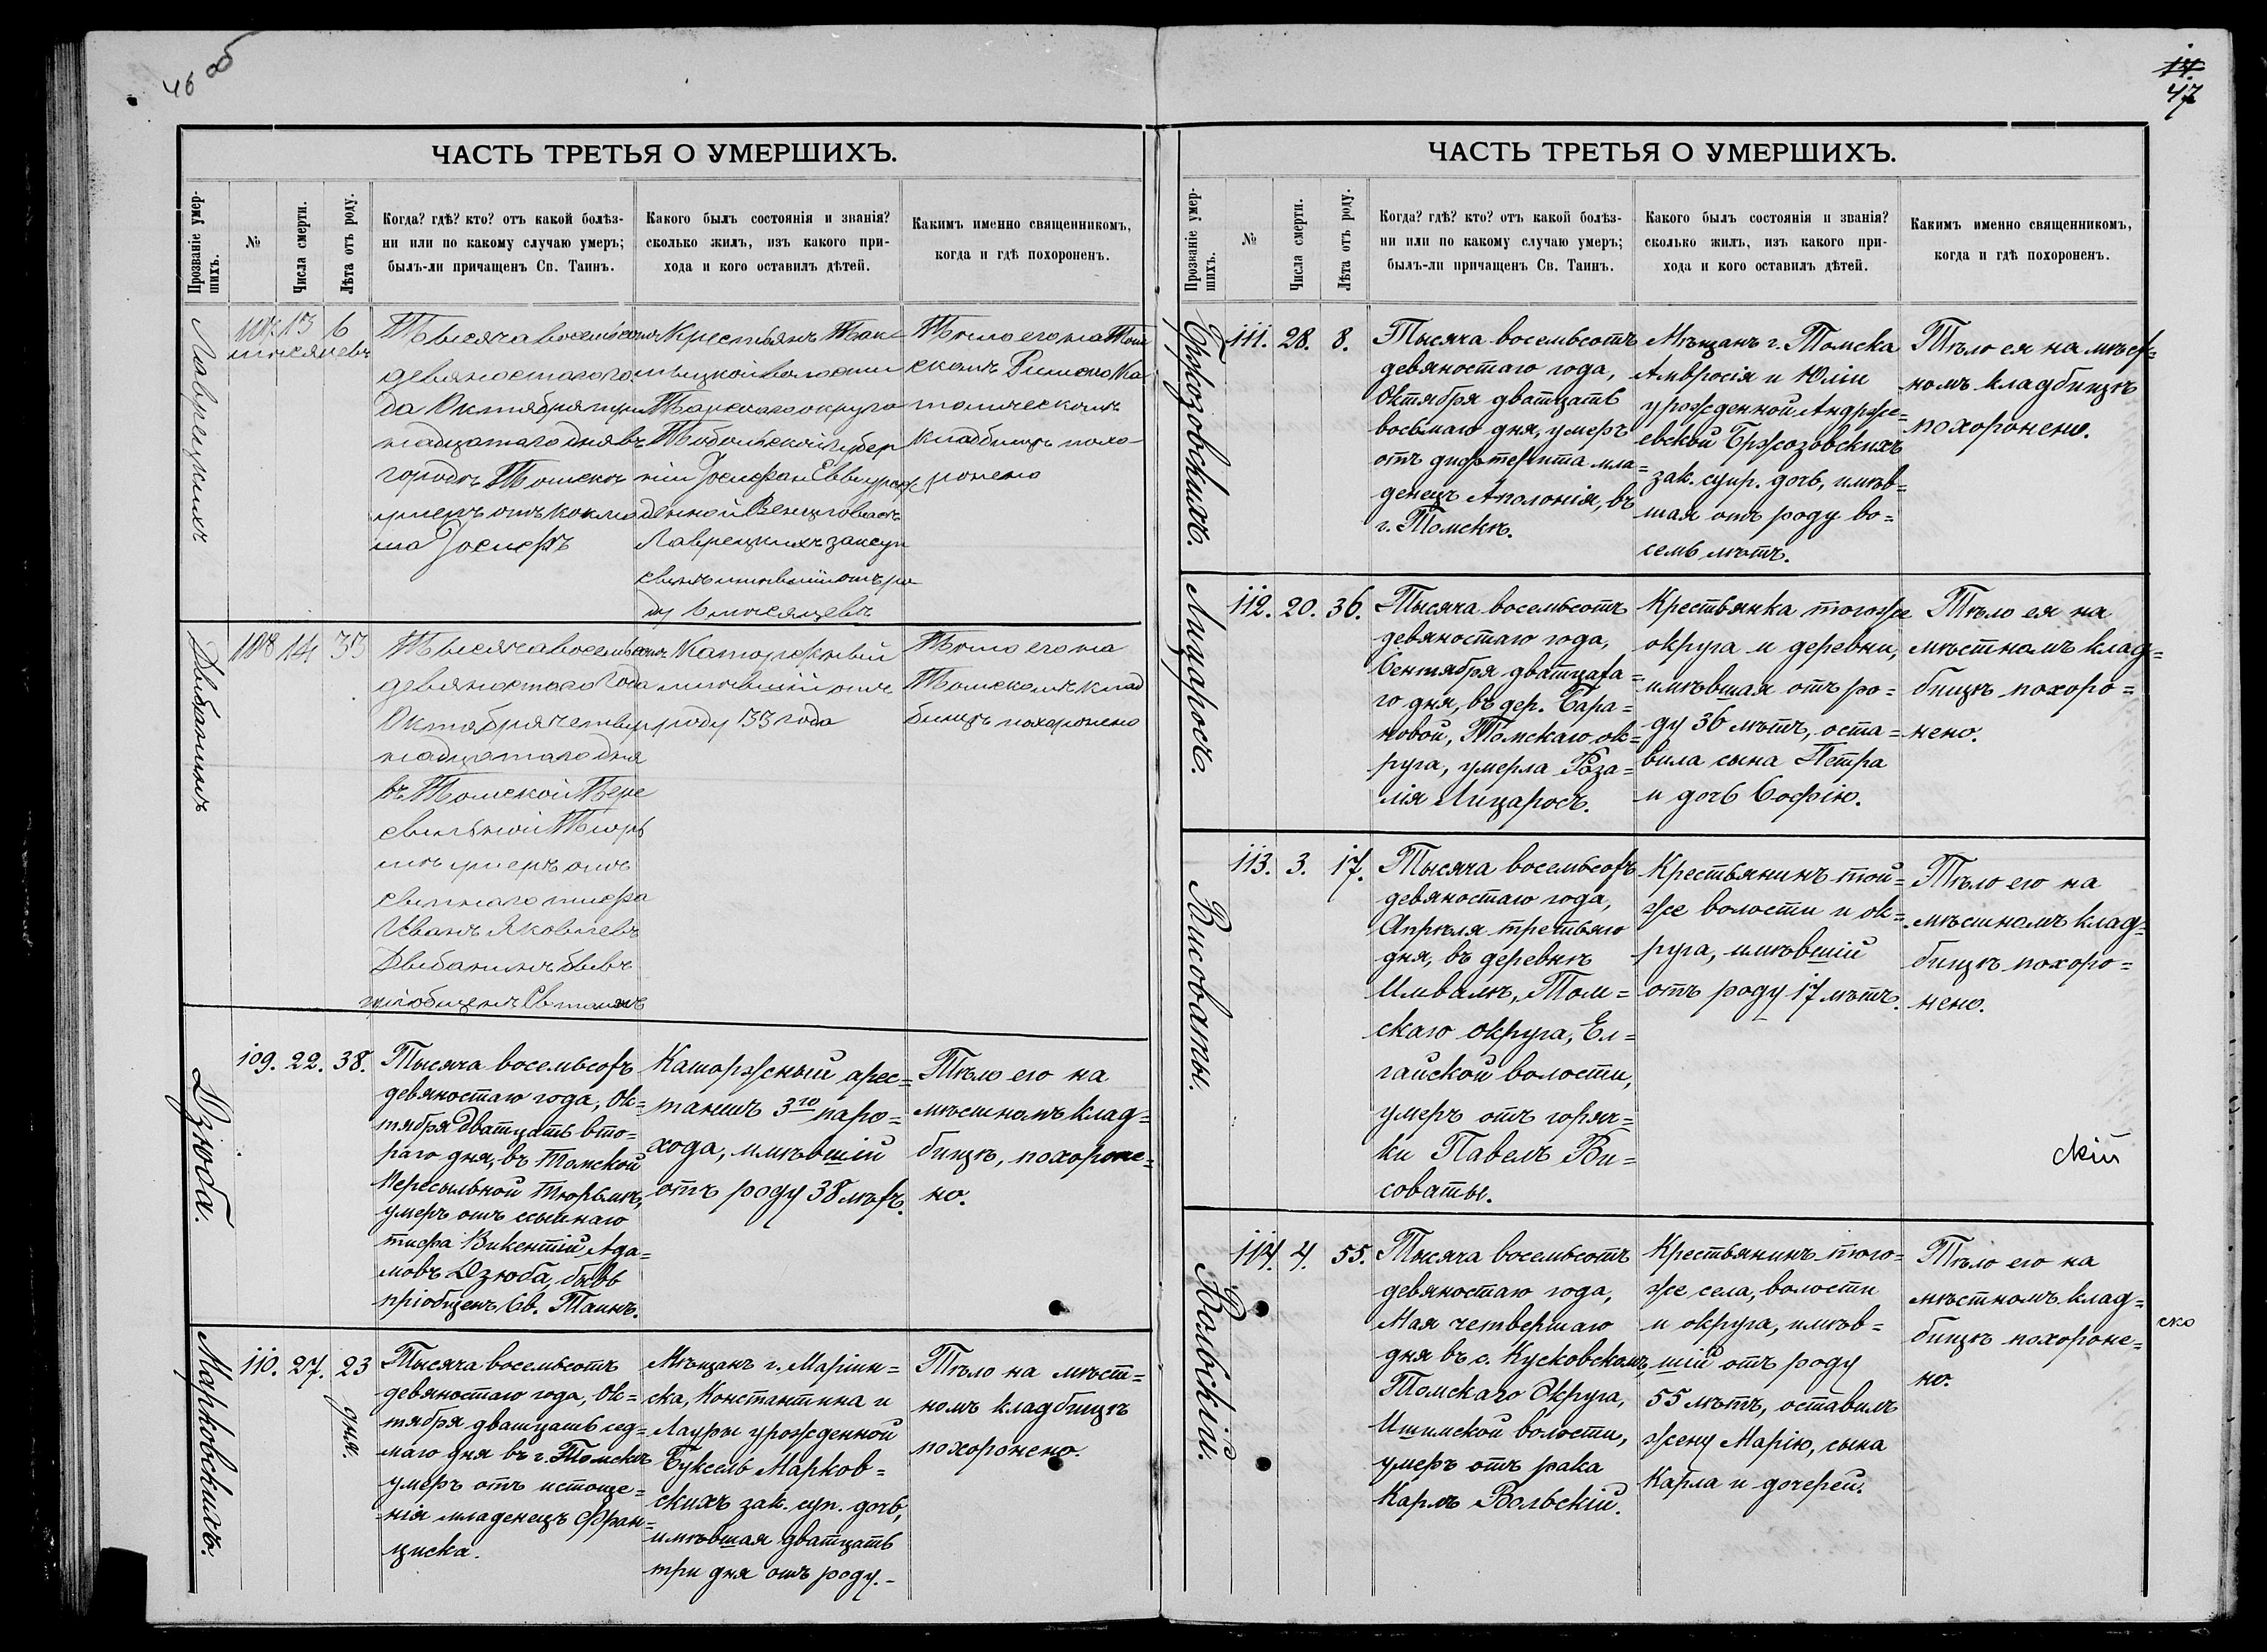 46 об
ЧАСТЬ ТРЕТЬЯ О УМЕРШИХЪ.
Прозваніе умер-
шихъ.
№
Числа смерти.
Лѣта отъ роду.
Когда? гдѣ? кто? отъ какой болѣз-
ни или по какому случаю умеръ;
былъ-ли причащенъ Св. Таинъ.
Какого былъ состоянія и званія?
сколько жилъ, изъ какого при-
хода и кого оставилъ дѣтей.
Какимъ именно священникомъ,
когда и гдѣ похороненъ.
Лаврецкихъ
107 13 6
мѣсяцевъ
Тысяча восемьсотъ
девяностаго го
да Октября три
надцатаго дня въ
городѣ Томскѣ
умеръ отъ коклю
ша Іосифъ
Крестьянъ
волости
Тарскаго округа
Тобольской губер
ніи Іосифа и Еввы урож
денной
Лаврецкихъ зак суп
сынъ имѣвшій отъ ро
ду 6 мѣсяцевъ
Тѣло его на Том
скомъ Римско Ка
толическомъ
кладбищѣ похо
ронено
Двибанинъ
108 14 33
Тысяча восемьсотъ
девяностаго года
Октября четыр
надцатаго дня
въ Томской Пере
сыльной Тюрь
мѣ умеръ отъ
сыпнаго тифа
Иванъ Яковлевъ
Двибанинъ бывъ
пріобщенъ Св таинъ
Каторжный
имѣвшій отъ
роду 33 года
Тѣло его на
Томскомъ клад
бищѣ похоронено
Дзюба.
109. 22. 38.
Тысяча восемьсотъ
девяностаго года, Ок=
тября двадцать вто=
раго дня, въ Томской
Пересыльной Тюрьмѣ,
умеръ отъ сыпнаго
тифа Викентій Ада=
мовъ Дзюба, бывъ
пріобщенъ Св. Таинъ.
Каторжный арес=
тантъ 3го паро=
хода, имѣвшій
отъ роду 38 лѣтъ.
Тѣло его на
мѣстномъ клад=
бищѣ, похороне=
но.
Марковскихъ.
110. 27. 23
дня.
Тысяча восемьсотъ
девяностаго года, Ок=
тября двадцать сед=
маго дня въ г. Томскѣ
умеръ отъ истоще=
нія младенецъ Фран=
циска.
Мѣщанъ г. Маріин=
ска, Константина и
Лауры урожденной
Буксель Марков=
скихъ зак. суп. дочь,
имѣвшая двадцать
три дня отъ роду.-
Тѣло на мѣст=
номъ кладбищѣ
похоронено.
14.
47
ЧАСТЬ ТРЕТЬЯ О УМЕРШИХЪ.
Прозваніе умер-
шихъ.
№
Числа смерти.
Лѣта отъ роду.
Когда? гдѣ? кто? отъ какой болѣз-
ни или по какому случаю умеръ;
былъ-ли причащенъ Св. Таинъ.
Какого былъ состоянія и званія?
сколько жилъ, изъ какого при-
хода и кого оставилъ дѣтей.
Какимъ именно священникомъ,
когда и гдѣ похороненъ.
Бржозовскихъ.
111. 28. 8.
Тысяча восемьсотъ
девяностаго года,
Октября двадцать
восьмаго дня, умеръ
отъ дифтерита мла=
денецъ Аполонія, въ
г. Томскѣ.
Мѣщанъ г. Томска
Амвросія и Юліи
урожденной Андрже=
евской Бржозовскихъ
зак. супр. дочь, имѣв=
шая отъ роду во=
семь лѣтъ.
Тѣло ея на мѣст=
номъ кладбищѣ
похоронено.
Лицаросъ.
112. 20. 36.
Тысяча восемьсотъ
девяностаго года,
Сентября двадцата=
го дня, въ дер. Бара=
новой, Томскаго ок=
руга, умерла Роза=
лія Лицаросъ.
Крестьянка тогоже
округа и деревни,
имѣвшая отъ ро=
ду 36 лѣтъ, оста=
вила сына Петра
и дочь Софію.
Тѣло ея на
мѣстномъ клад=
бищѣ похоро=
нено.
Висоваты.
113. 3. 17.
Тысяча восемьсотъ
девяностаго года,
Апрѣля третьяго
дня, въ деревнѣ
Имвалѣ, Том=
скаго округа, Ел=
гайской волости,
умеръ отъ горяч=
ки Павелъ Ви=
соваты.
Крестьянинъ той=
же волости и ок=
руга, имѣвшій
отъ роду 17 лѣтъ.
Тѣло его на
мѣстномъ клад=
бищѣ похоро=
нено.
скій
Вольскій.
114. 4. 55.
Тысяча восемьсотъ
девяностаго года,
Мая четвертаго
дня въ с. Кусковскомъ,
Томскаго Округа,
Ишимской волости,
умеръ отъ рака
Карлъ Вольскій.
Крестьянинъ того=
же села, волости
и округа, имѣв=
шій отъ роду
55 лѣтъ, оставилъ
жену Марію, сына
Карла и дочерей.
Тѣло его на
мѣстномъ клад=
бищѣ похороне=
но.
ско